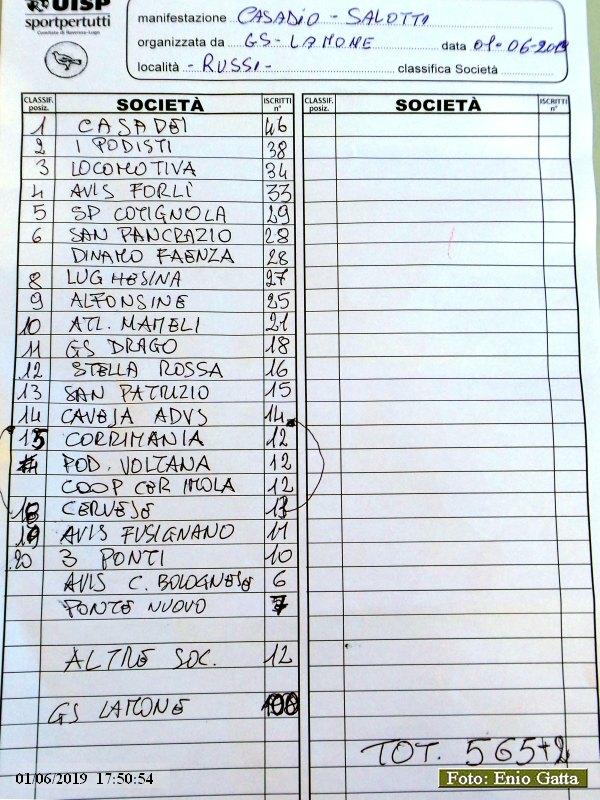 UISP
sportpertutti
Comitato di Ravenna-Lugo
manifestazione CASADIO - SALOTTI
organizzata da GS-LAMONE data 01-06-2019
località - RUSSI - classifica Società
CLASSIF. posiz. SOCIETÀ ISCRITTI n° CLASSIF. posiz. SOCIETÀ ISCRITTI n°
1 CASADEI 46
2 I PODISTI 38
3 LOCOMOTIVA 34
4 AVIS FORLÌ 33
5 SP COTIGNOLA 29
6 SAN PANCRAZIO 28
DINAMO FAENZA 28
8 LUGHESINA 27
9 ALFONSINE 25
10 ATL. MAMELI 21
11 GS DRAGO 18
12 STELLA ROSSA 16
13 SAN PATRIZIO 15
14 CAVEJA ADVS 14
15 CORRIMANIA 12
POD. VOLTANA 12
COOP CER IMOLA 12
18 CERVESE
19 AVIS FUSIGNANO 11
20 3 PONTI 10
AVIS C. BOLOGNESE 6
PONTE NUOVO 7
ALTRE SOC. 12
GS LAMONE 100
TOT. 565+2
01/06/2019 17:50:54
Foto: Enio Gatta